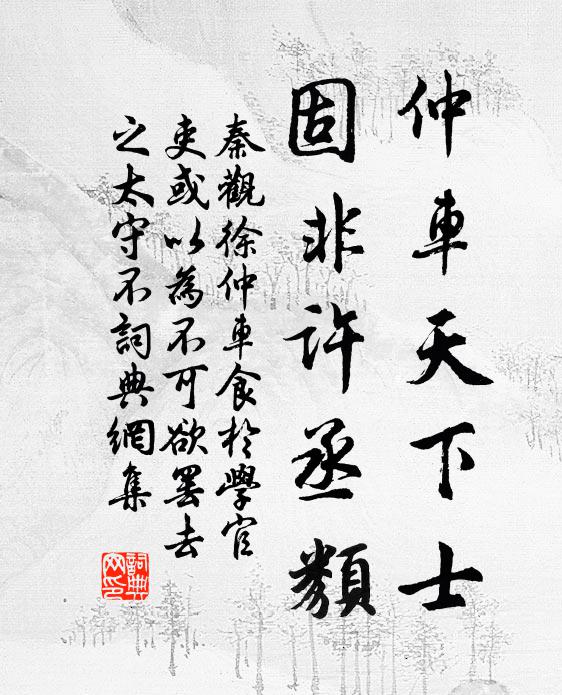 仲車天下士
固非許丞類
秦觀徐仲車食於學官
吏或以為不可欲罷去
之太守不詞典網集
詞典網印